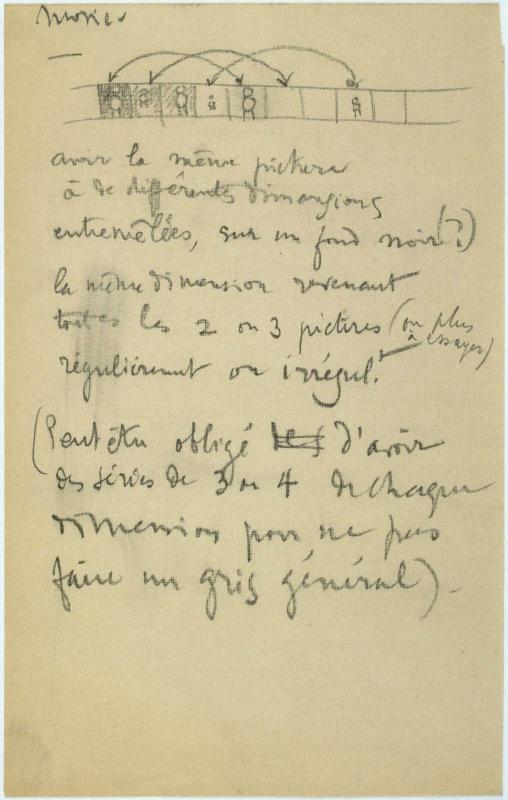 Movies
avoir la même picture
à de différentes dimensions
entremêlées, sur un fond noir (?)
la même dimension revenant
toutes les 2 ou 3 pictures (ou plus
à essayer)
régulièrement ou irrégul.
(Peut être obligé d'avoir
des séries de 3 ou 4 de chaque
dimension pour ne pas
faire un gris général).